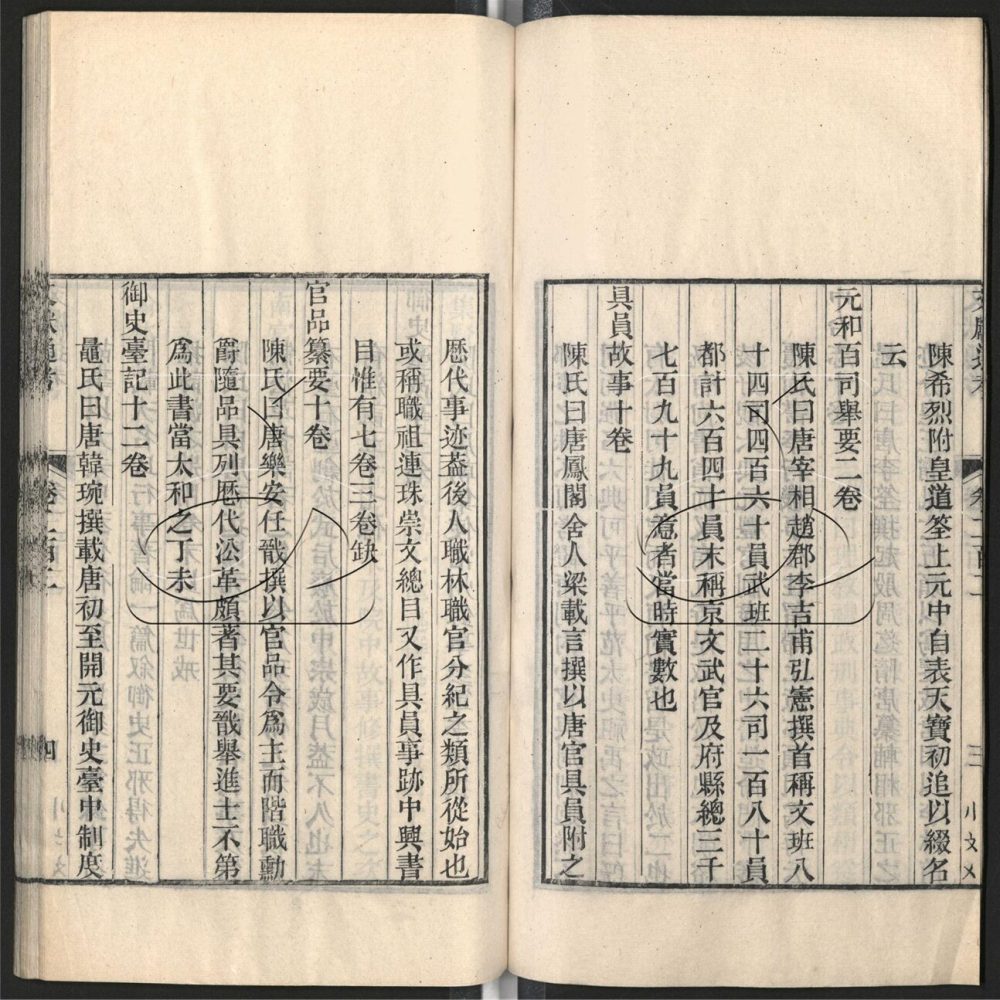 陳希烈附皇道筌上元中自表天寶初追以綴名
云
元和百司舉要二卷
陳氏曰唐宰相趙郡李吉甫弘憲撰首稱文班八
十四司四百六十員武班二十六司一百八十員
都計六百四十員末稱京文武官及府縣總三千
七百九十九員意者當時實數也
具員故事十卷
陳氏曰唐鳳閣舍人梁載言撰以唐官具員附之
歷代事迹葢後人職林職官分紀之類所從始也
或稱職祖連珠崇文總目又作具員事跡中興書
目惟有七卷三卷缺
官品纂要十卷
陳氏曰唐樂安任戩撰以官品令爲主而階職勳
爵隨品具列歷代沿革頗著其要戩舉進士不第
爲此書當太和之丁未
御史臺記十二卷
鼂氏曰唐韓琬撰載唐初至開元御史臺中制度
卷二百二
四
三